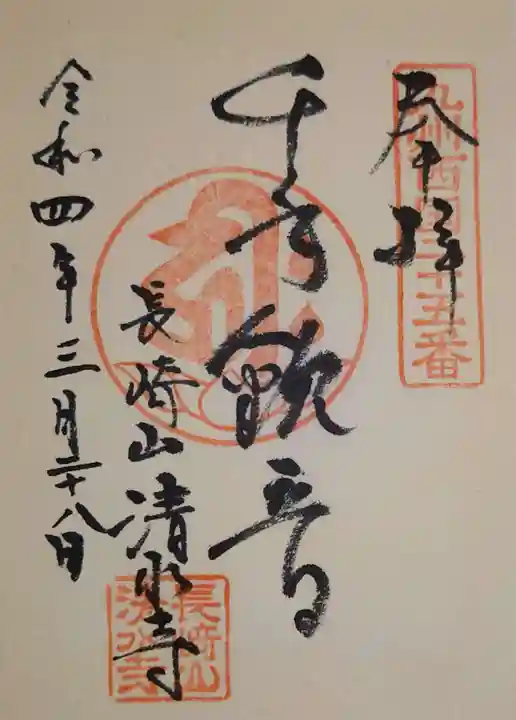 奉拝
九州西国二十五番
千手観音
長崎山清水寺
長崎山
清水寺
令和四年三月二十八日